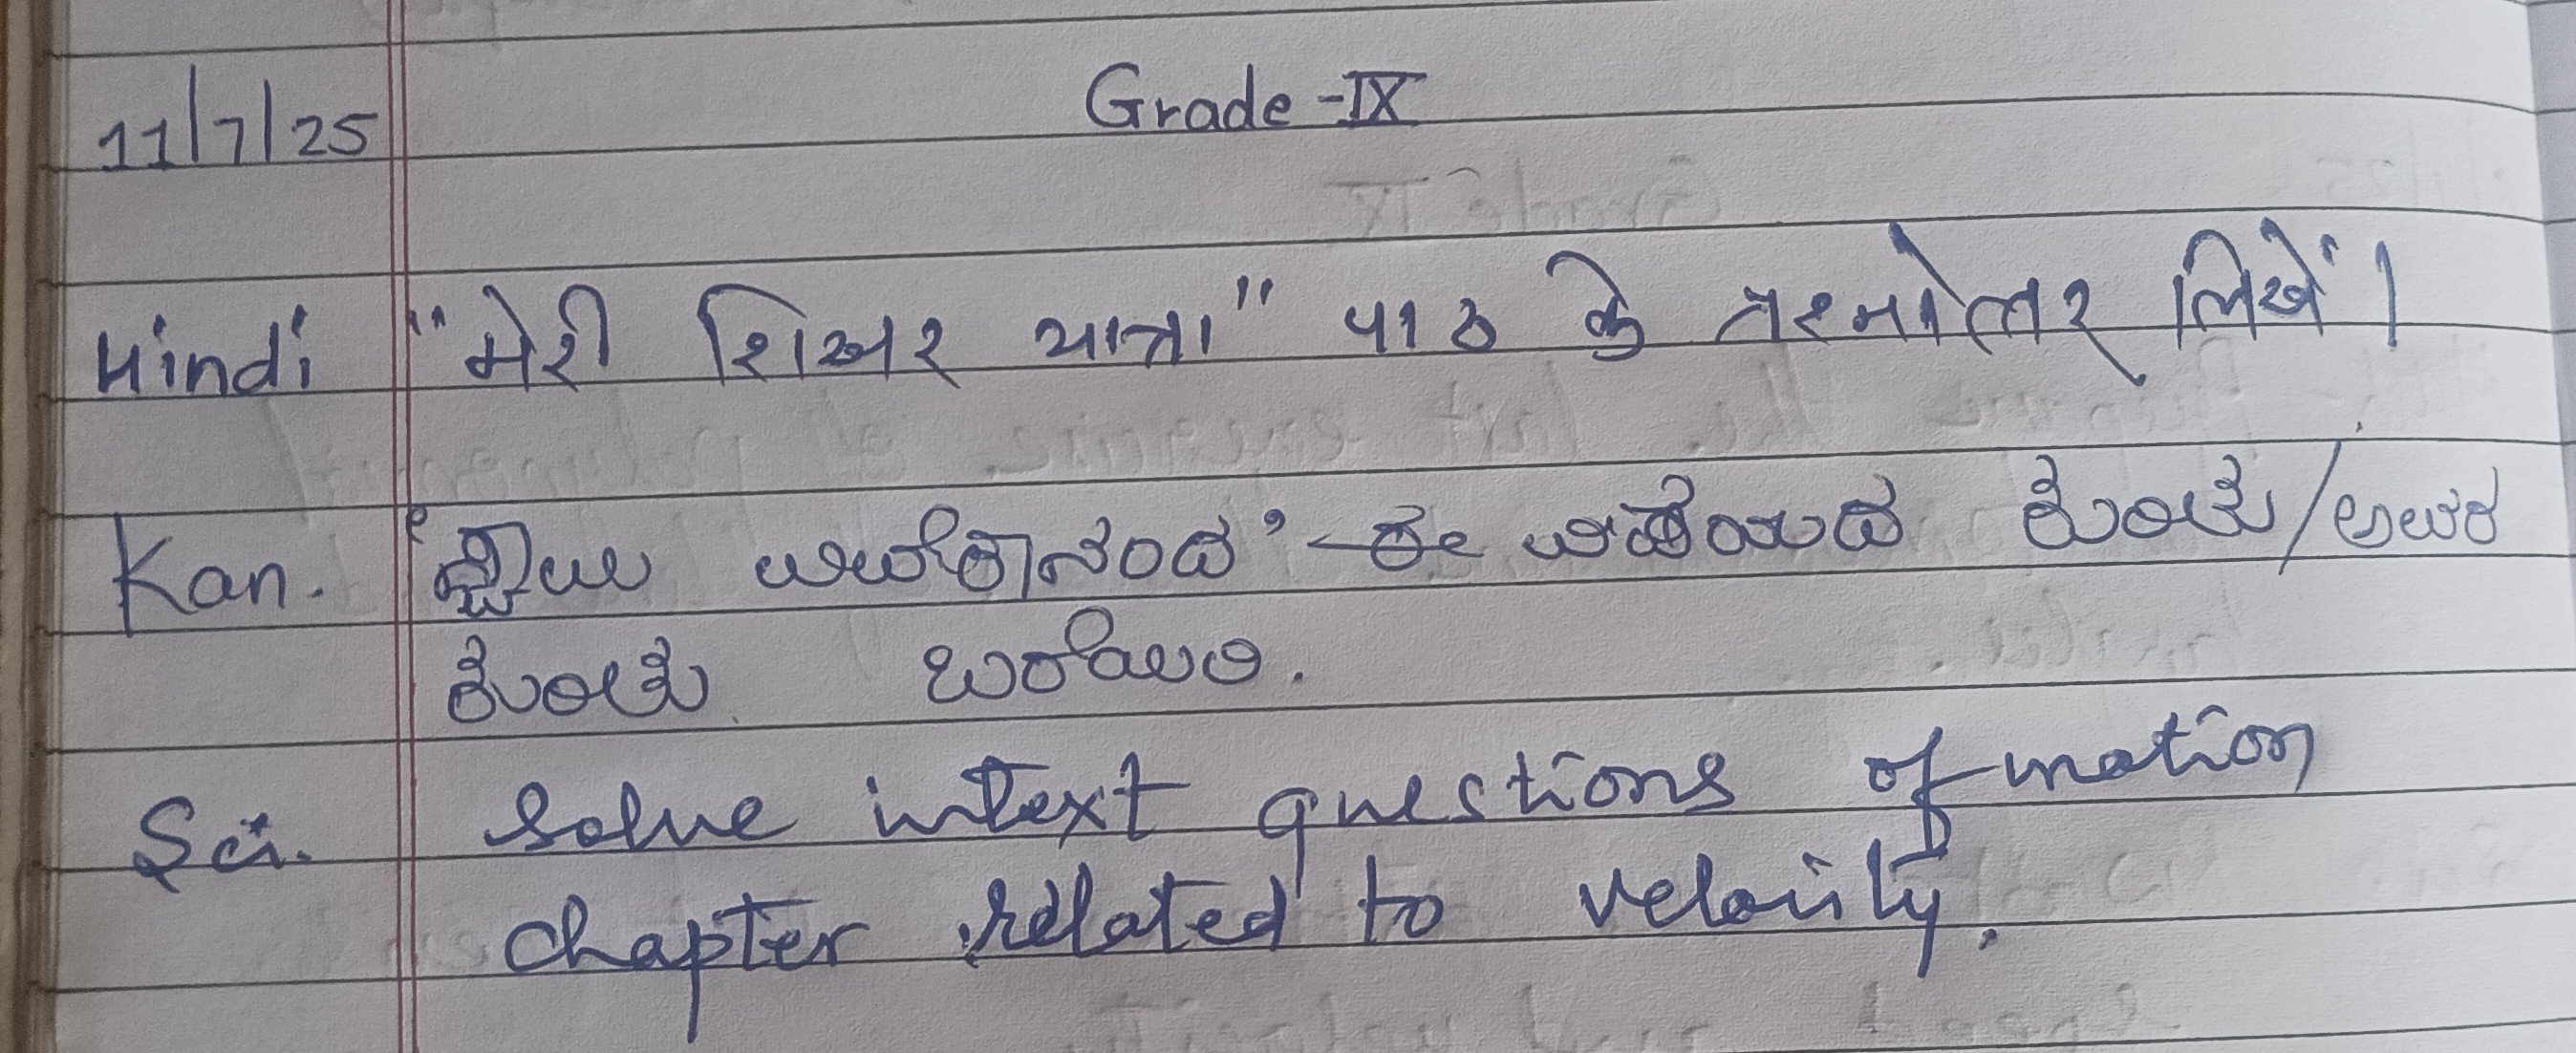 11/7/25 Grade - IX
Hindi "मेरी शिखर यात्रा" पाठ के प्रश्नोत्तर लिखें।
Kan. 'ಸ್ವಾಮಿ ವಿವೇಕಾನಂದ' - ಈ ವಿಷಯದ ಕುರಿತು / ಅವರ
ಕುರಿತು ಬರೆಯಿರಿ.
Sci. Solve intext questions of motion
chapter related to velocity.